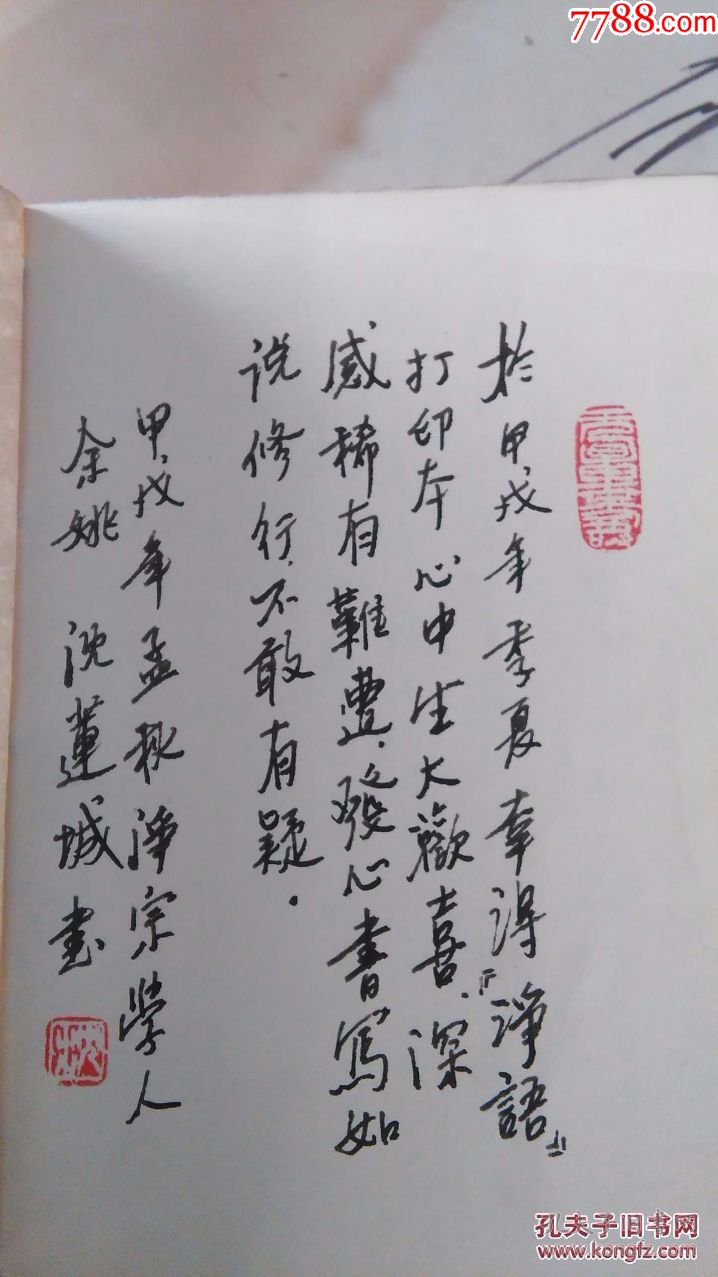 於甲戌年季夏幸得『淨語』
打印本心中生大歡喜、深
感稀有難遭，發心書寫如
说修行，不敢有疑．
甲戌年孟秋淨宗學人
余姚 沈蓮城书
7788.com
孔夫子旧书网
www.kongfz.com